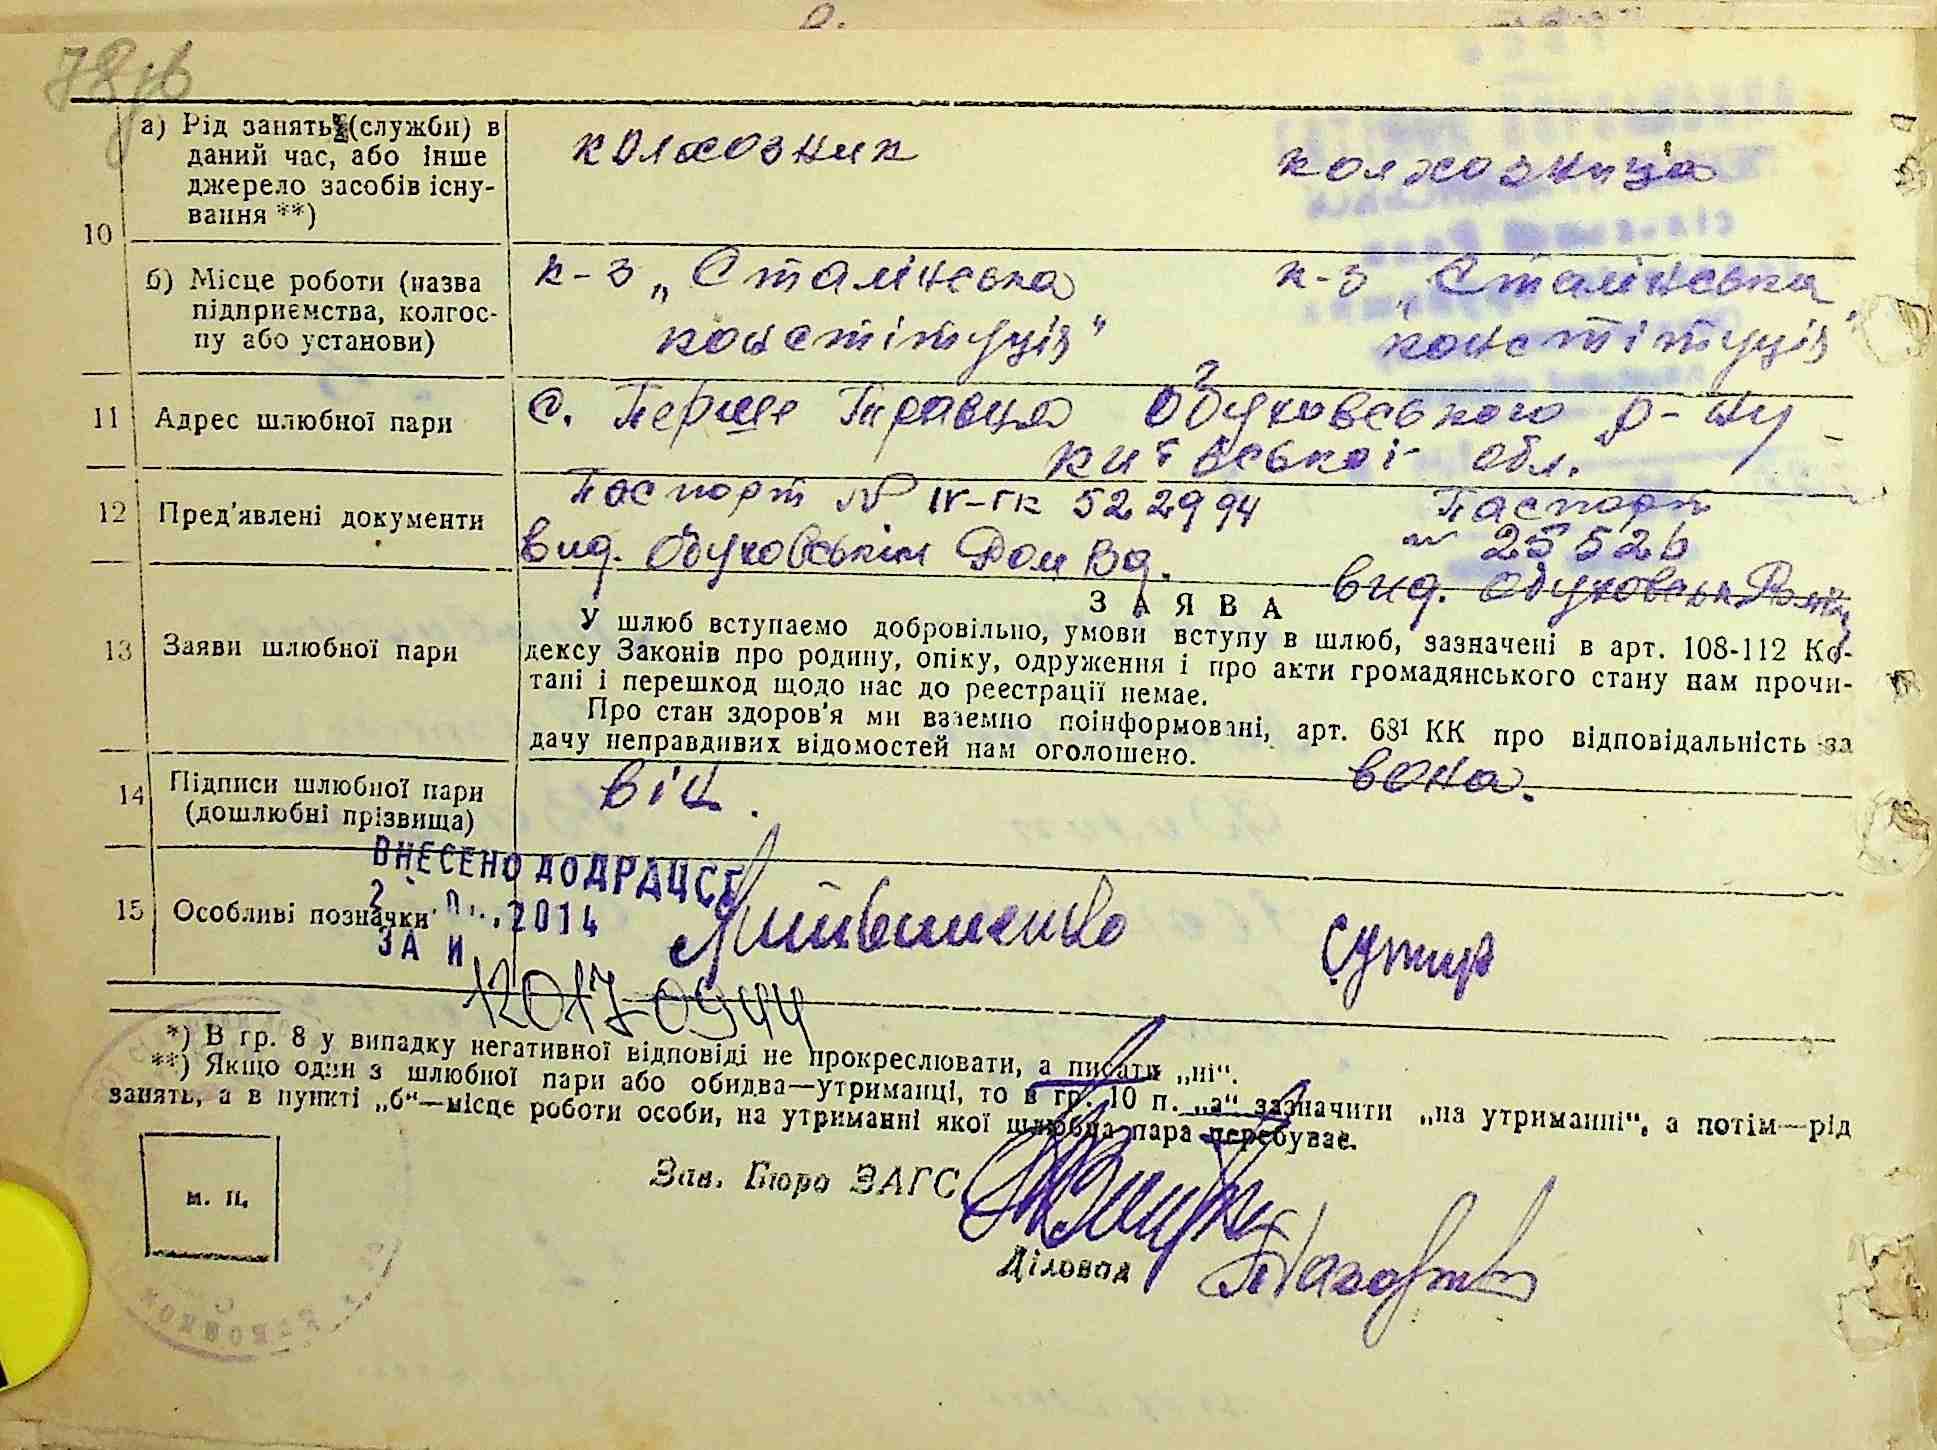 78зв
10
а) Рід занять (служби) в
даний час, або інше
джерело засобів існу-
вання **)
колхозник
колхозниця
б) Місце роботи (назва
підприємства, колгос-
пу або установи)
к-з „Сталінська
конституція“
к-з „Сталінська
конституція“
11 Адрес шлюбної пари
с. Перше Травня Обуховського р-ну
Київської обл.
12 Пред'явлені документи
Паспорт № IV-ГК 522994
вид. Обуховськім
Паспорт
№ 25526
вид.
13 Заяви шлюбної пари
ЗАЯВА
У шлюб вступаємо добровільно, умови вступу в шлюб, зазначені в арт. 108-112 Ко-
дексу Законів про родину, опіку, одруження і про акти громадянського стану нам прочи-
тані і перешкод щодо нас до реєстрації немає.
Про стан здоров'я ми взаємно поінформовані, арт. 68¹ КК про відповідальність за
дачу неправдивих відомостей нам оголошено.
14 Підписи шлюбної пари
(дошлюбні прізвища)
він.
вона.
15 Особливі позначки
ВНЕСЕНО ДО ДРАЦСГ
2014
ЗА №
12017-0944
*) В гр. 8 у випадку негативної відповіді не прокреслювати, а писати „ні“.
**) Якщо один з шлюбної пари або обидва—утриманці, то в гр. 10 п. „а“ зазначити „на утриманні“, а потім—рід
занять, а в пункті „б“—місце роботи особи, на утриманні якої шлюбна пара перебуває.
м. п.
Зав. Бюро ЗАГС
Діловод